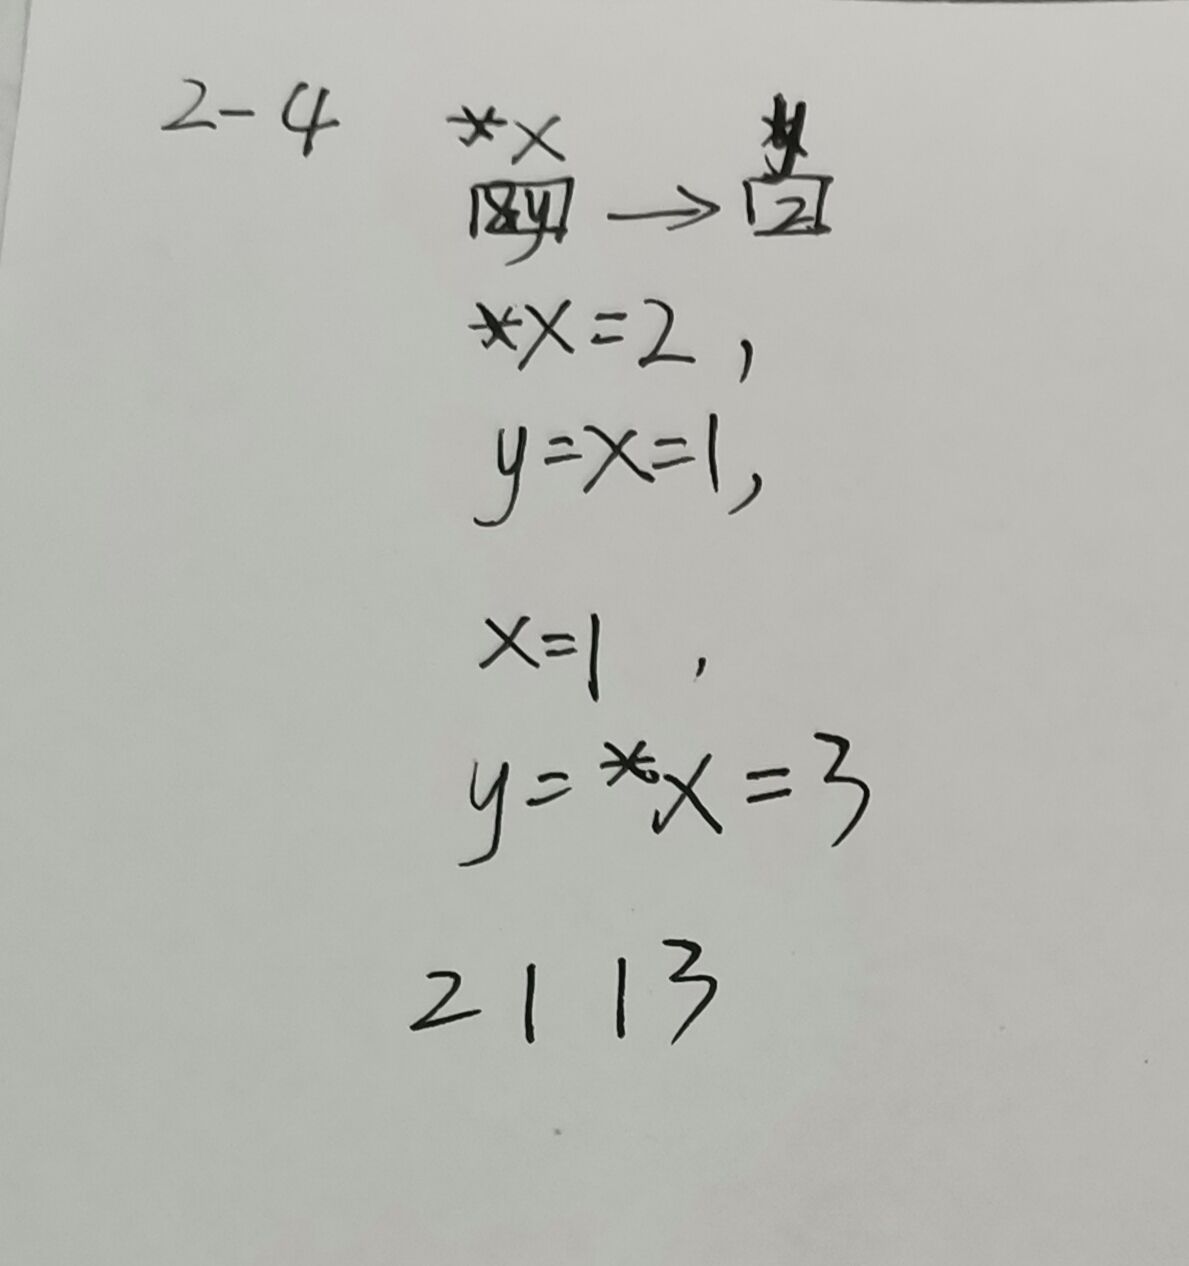 2-4 *x y
&y → 2
*x=2,
y=x=1,
x=1 ,
y=*x=3
2 1 1 3